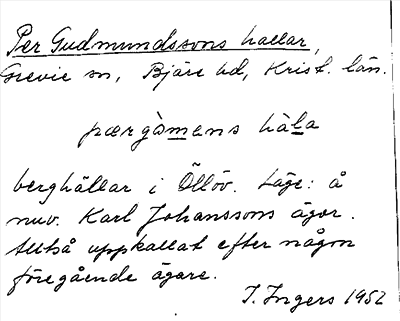 Per Gudmundssons hallar,
Grevie sn, Bjäre hd, Krist. län.
pærgàmens hàla
berghällar i Öllöv. Läge: å
nuv. Karl Johanssons ägor.
Alltså uppkallat efter någon
föregående ägare.
I. Ingers 1952